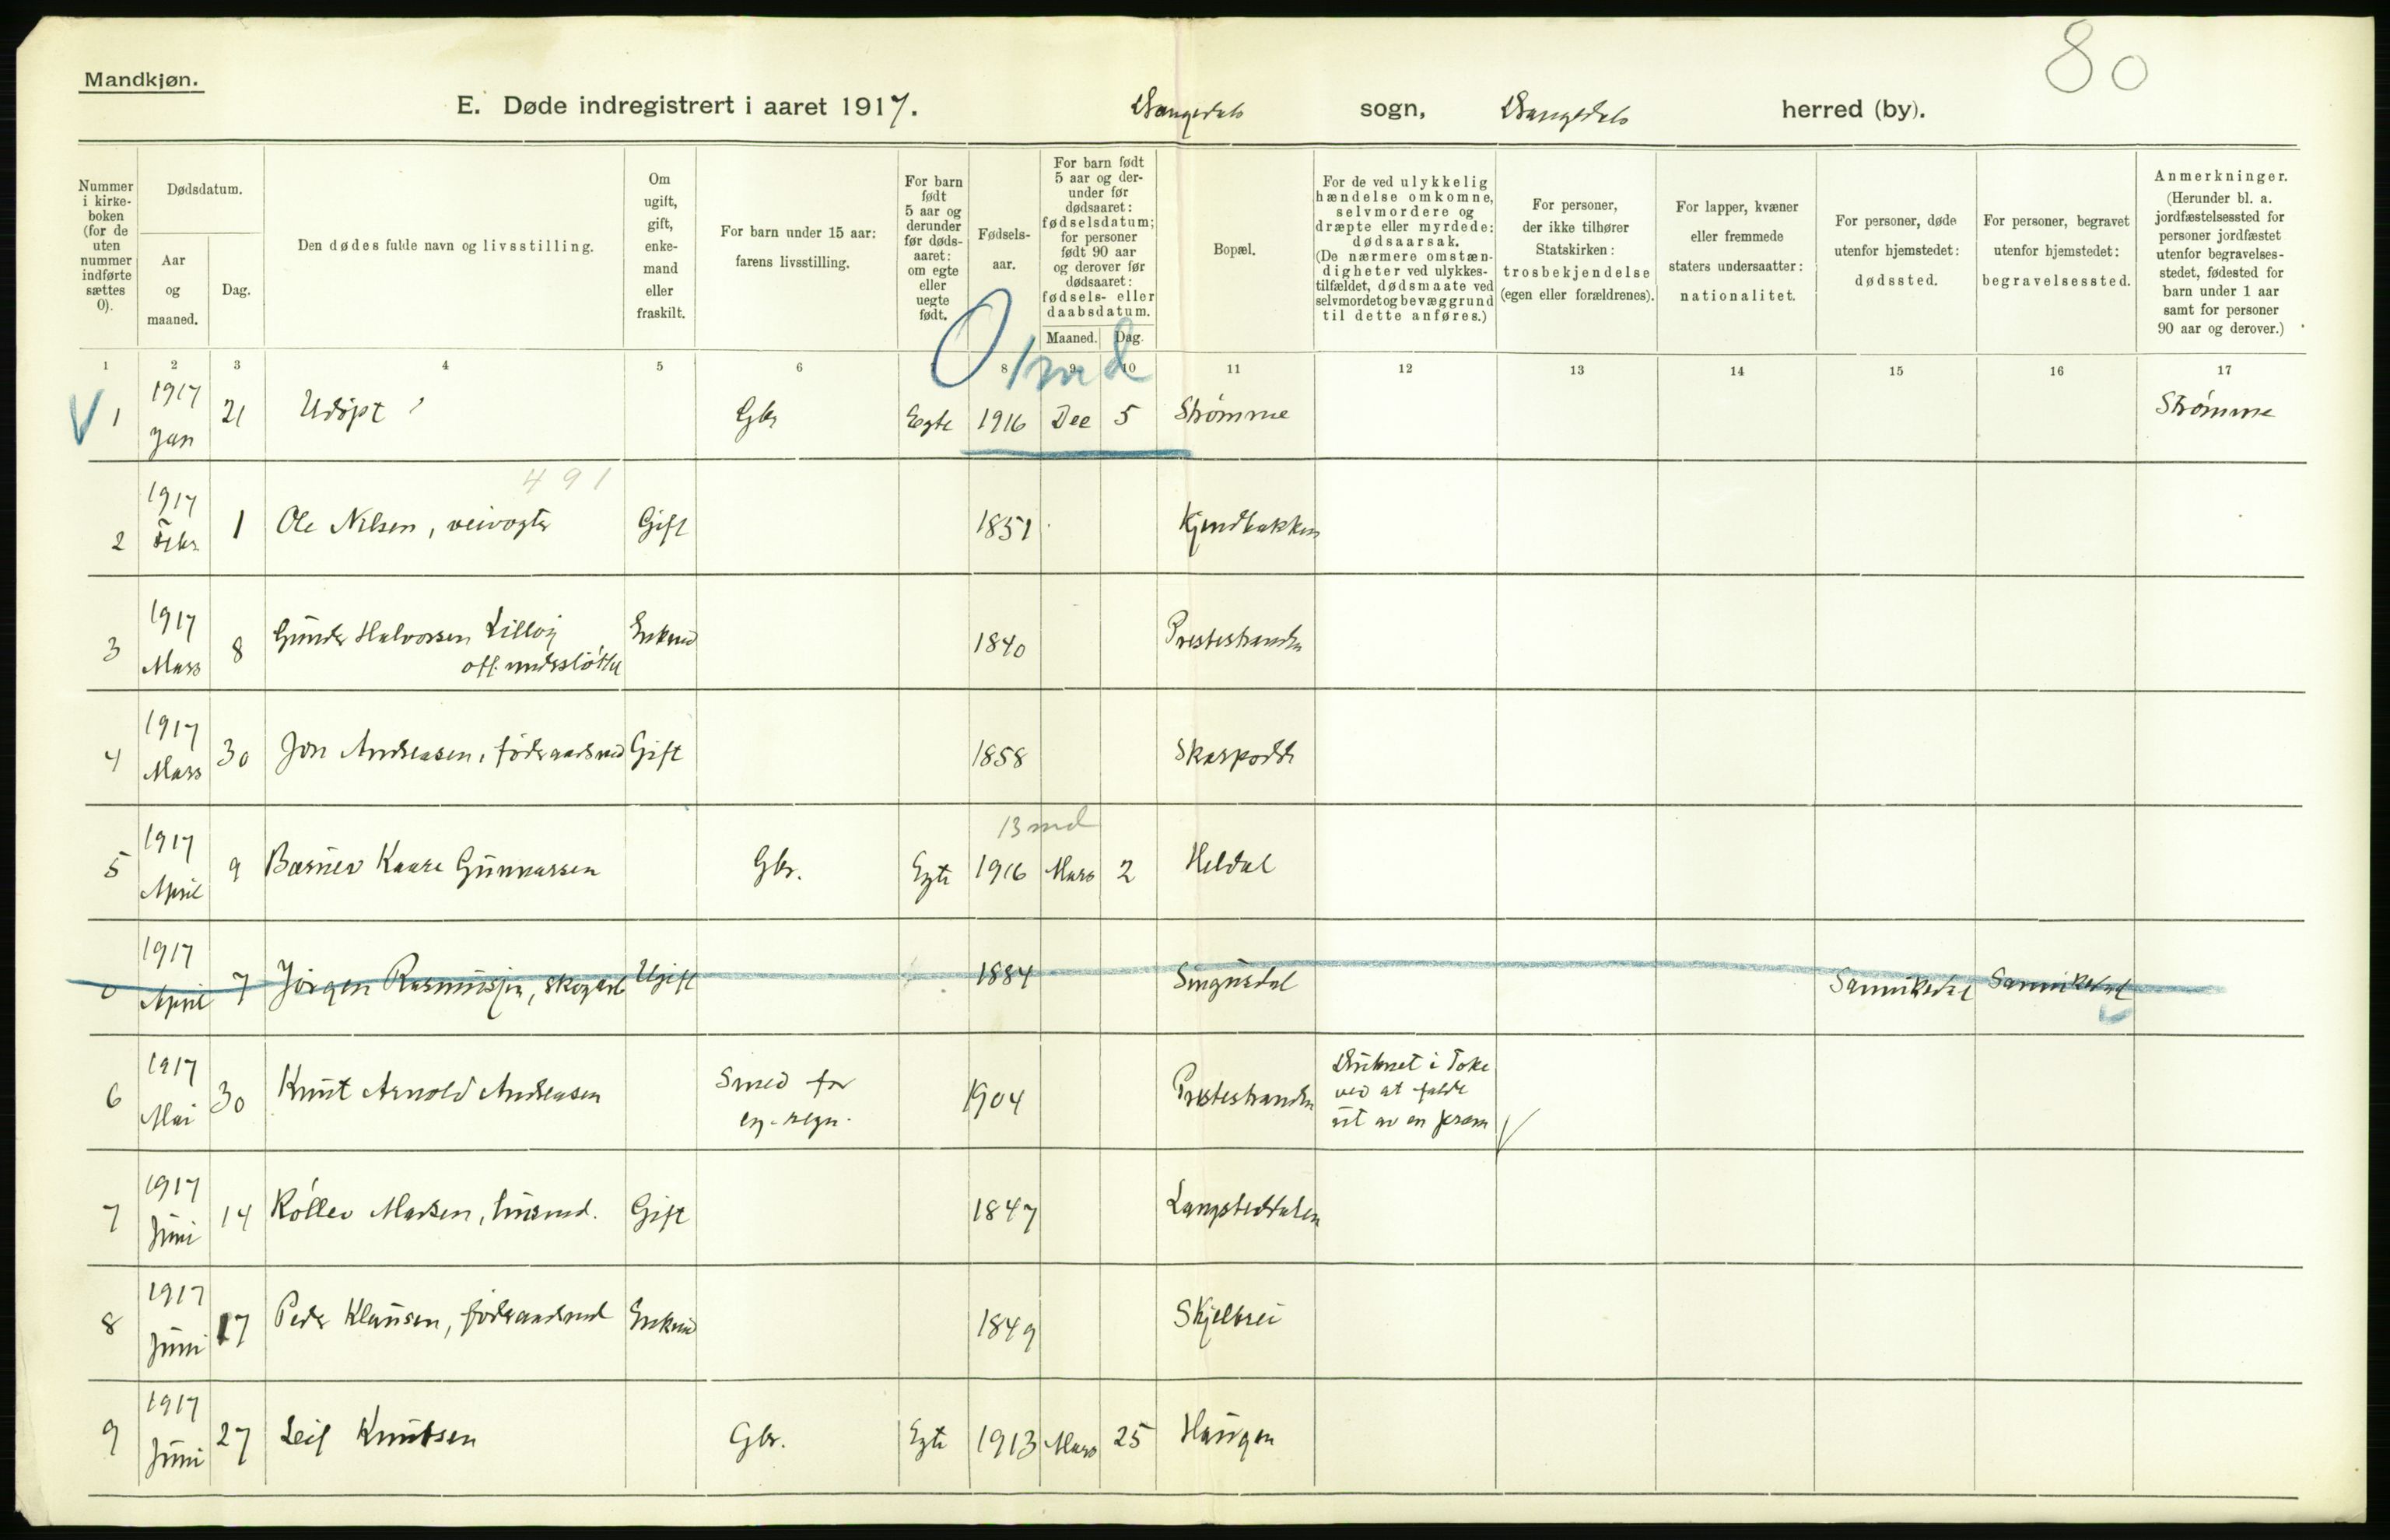 80
Mandkjøn.
E. Døde indregistrert i aaret 1917. Drangedals sogn, Drangedals herred (by).
Nummer i kirke-boken (for de uten nummer indførte sættes 0).
Dødsdatum.
Aar og maaned.
Dag.
Den dødes fulde navn og livsstilling.
Om ugift, gift, enke-mand eller fraskilt.
For barn under 15 aar: farens livsstilling.
For barn født 5 aar og derunder før døds-aaret: om egte eller uegte født.
Fødsels-aar.
For barn født 5 aar og der-under før dødsaaret: fødselsdatum; for personer født 90 aar og derover før dødsaaret: fødsels- eller daabsdatum.
Maaned. Dag.
Bopæl.
For de ved ulykkelig hændelse omkomne, selvmordere og dræpte eller myrdede: dødsaarsak. (De nærmere omstæn-digheter ved ulykkes-tilfældet, dødsmaate ved selvmordet og bevæggrund til dette anføres.)
For personer, der ikke tilhører Statskirken: trosbekjendelse (egen eller forældrenes).
For lapper, kvæner eller fremmede staters undersaatter: nationalitet.
For personer, døde utenfor hjemstedet: dødssted.
For personer, begravet utenfor hjemstedet: begravelsessted.
Anmerkninger. (Herunder bl. a. jordfæstelsessted for personer jordfæstet utenfor begravelses-stedet, fødested for barn under 1 aar samt for personer 90 aar og derover.)
1 2 3 4 5 6 8 9 10 11 12 13 14 15 16 17
0 1 md
1 1917 Jan 21 Udøpt Gbr Egte 1916 Dec 5 Strømme Strømme
491
2 1917 Febr. 1 Ole Nilsen, veivogter Gift 1851 Kjendbakken
3 1917 Mars 8 Gunder Halvorsen Lilløi Enkmd 1840 Prestestranden
off. understøttet
4 1917 Mars 30 Jon Andreasen, föderaadsmd Gift 1858 Skarpodde
13 md
5 1917 April 9 Barnev Kaare Gunnarsen Gbr. Egte 1916 Mars 2 Heldal
0 1917 April 7 Jörgen Rasmussen, skogarb Ugift 1884 Singusdal Sannikedal Sannikedal
6 1917 Mai 30 Knut Arnold Andreasen Smed for eg. regn. 1904 Prestestranden Druknet i Toke
ved at falde
ut av en pram
7 1917 Juni 14 Rollev Madsen, husmd. Gift 1847 Langstøddalen
8 1917 Juni 17 Peder Klausen, föderaadsmd Enkmd 1849 Skjelbrei
9 1917 Juni 27 Leif Knutsen Gbr. Egte 1913 Mars 25 Haugen